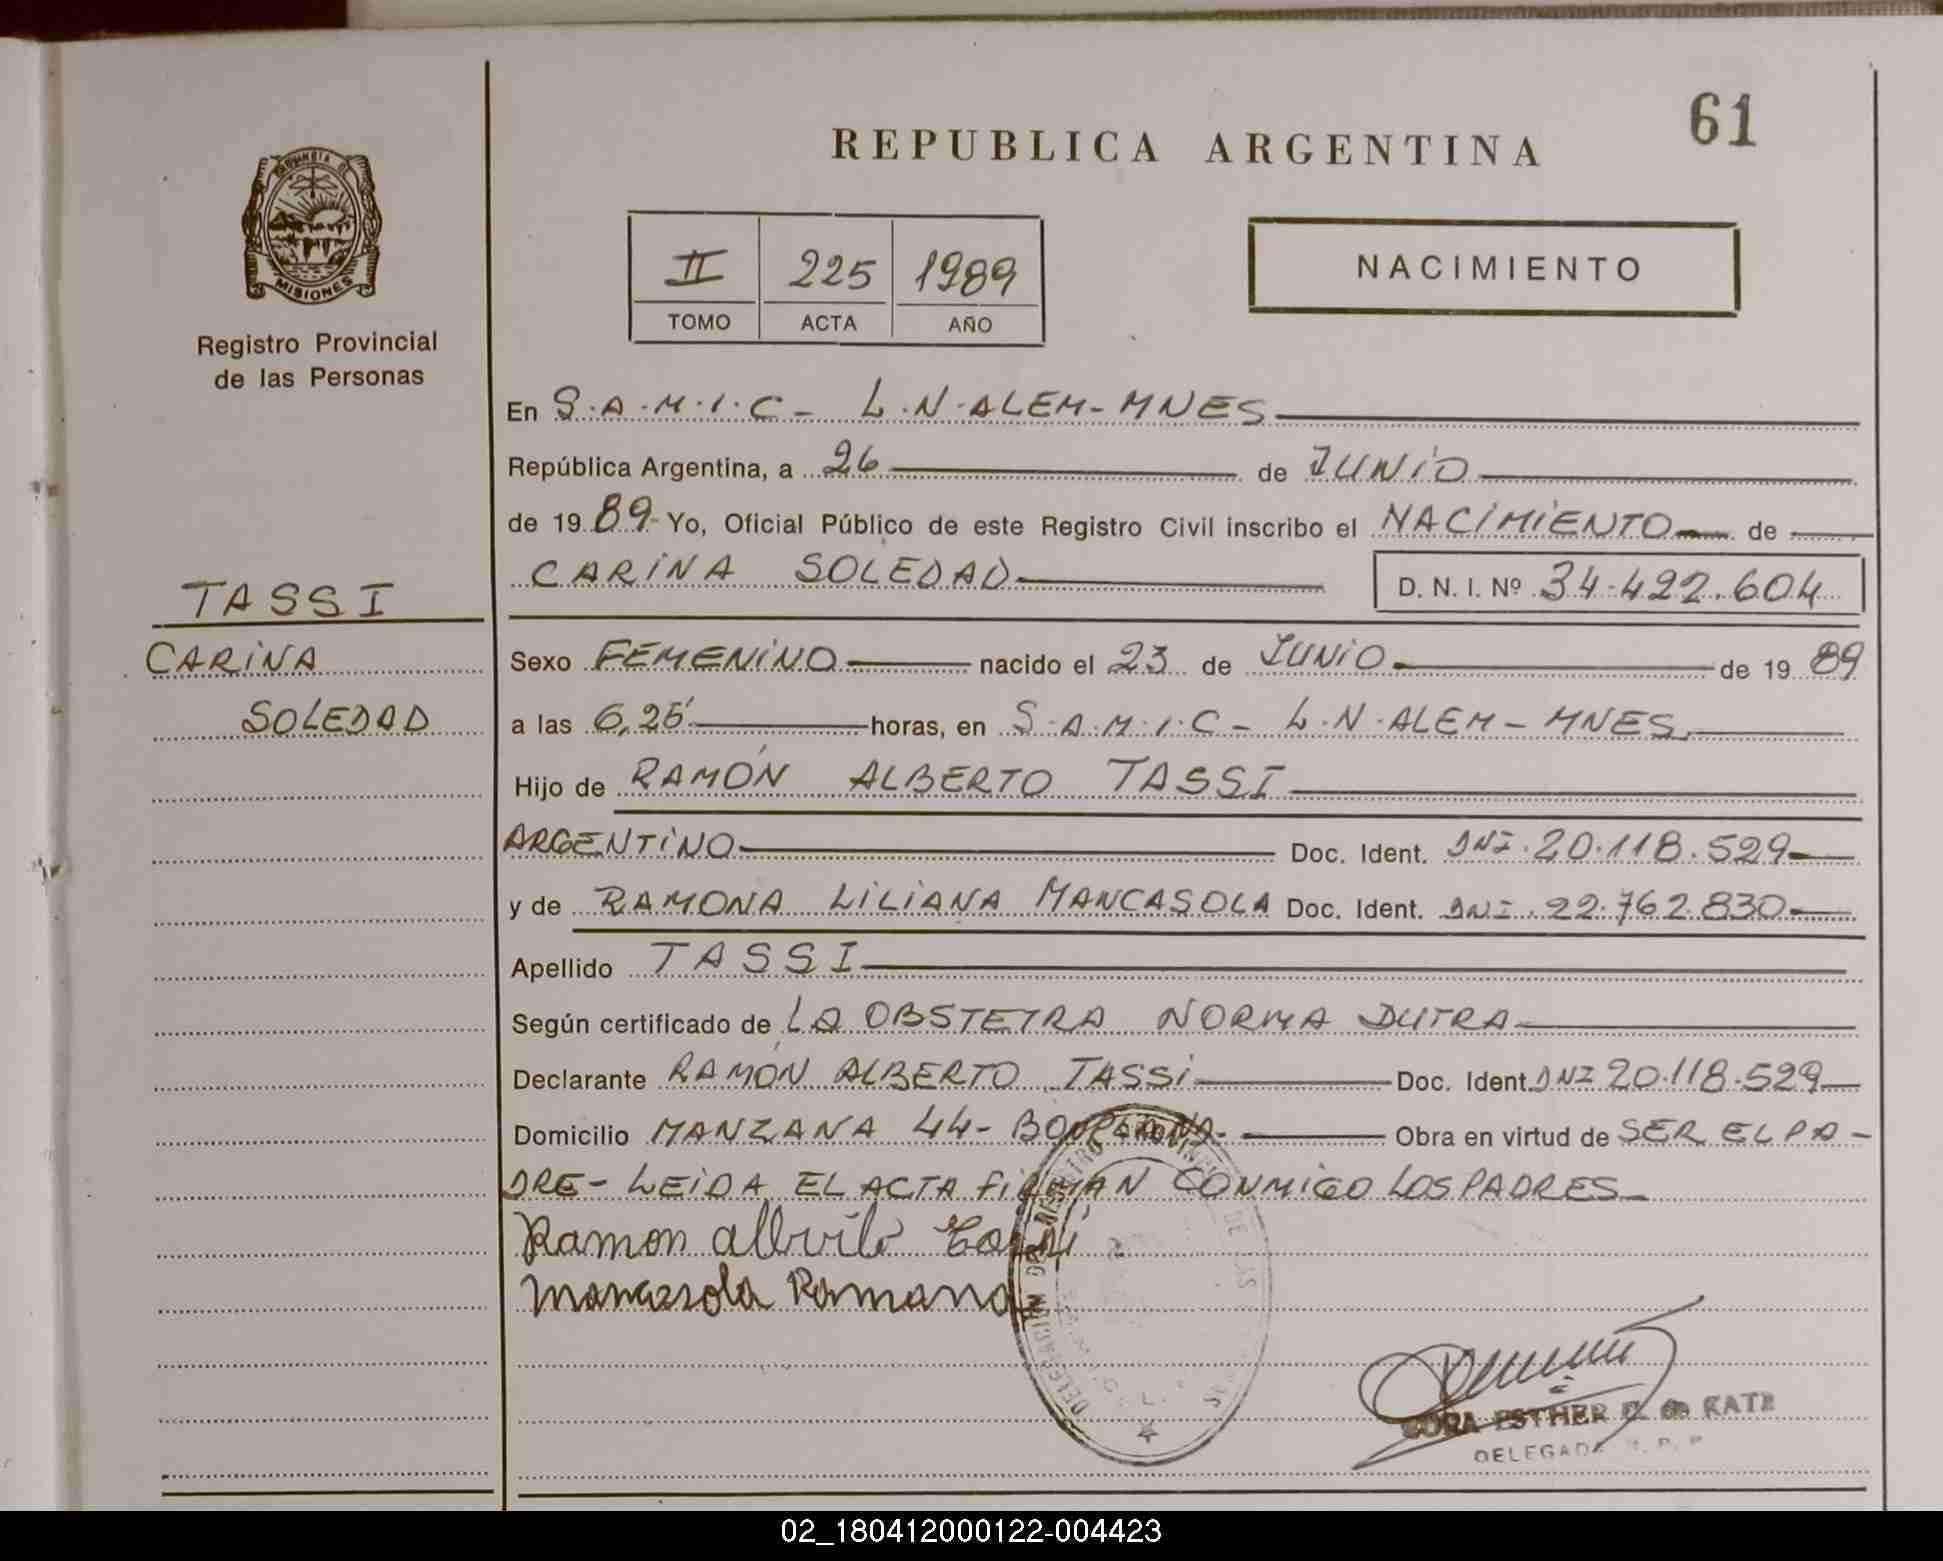 61
REPUBLICA ARGENTINA
PROVINCIA DE
MISIONES
II 225 1989
TOMO ACTA AÑO
NACIMIENTO
Registro Provincial
de las Personas
En S.A.M.I.C - L.N.ALEM-MNES
República Argentina, a 26 de JUNIO
de 1989 Yo, Oficial Público de este Registro Civil inscribo el NACIMIENTO de
CARINA SOLEDAD D. N. I. Nº 34.422.604
TASSI
CARINA
SOLEDAD
Sexo FEMENINO nacido el 23 de JUNIO de 1989
a las 6,25' horas, en S.A.M.I.C - L.N.ALEM-MNES
Hijo de RAMÓN ALBERTO TASSI
ARGENTINO Doc. Ident. DNI.20.118.529
y de RAMONA LILIANA MANCASOLA Doc. Ident. DNI.22.762.830
Apellido TASSI
Según certificado de LA OBSTETRA NORMA DUTRA
Declarante RAMÓN ALBERTO TASSI Doc. Ident. DNI 20.118.529
Domicilio MANZANA 44- Obra en virtud de SER EL PA-
DRE- LEIDA EL ACTA FIRMAN CONMIGO LOS PADRES
Ramon alberto Tassi
Mancasola Ramona
DELEGACION DEL REGISTRO PROVINCIAL DE LAS
ESTHER
DELEGADA R. P. P.
02_180412000122-004423